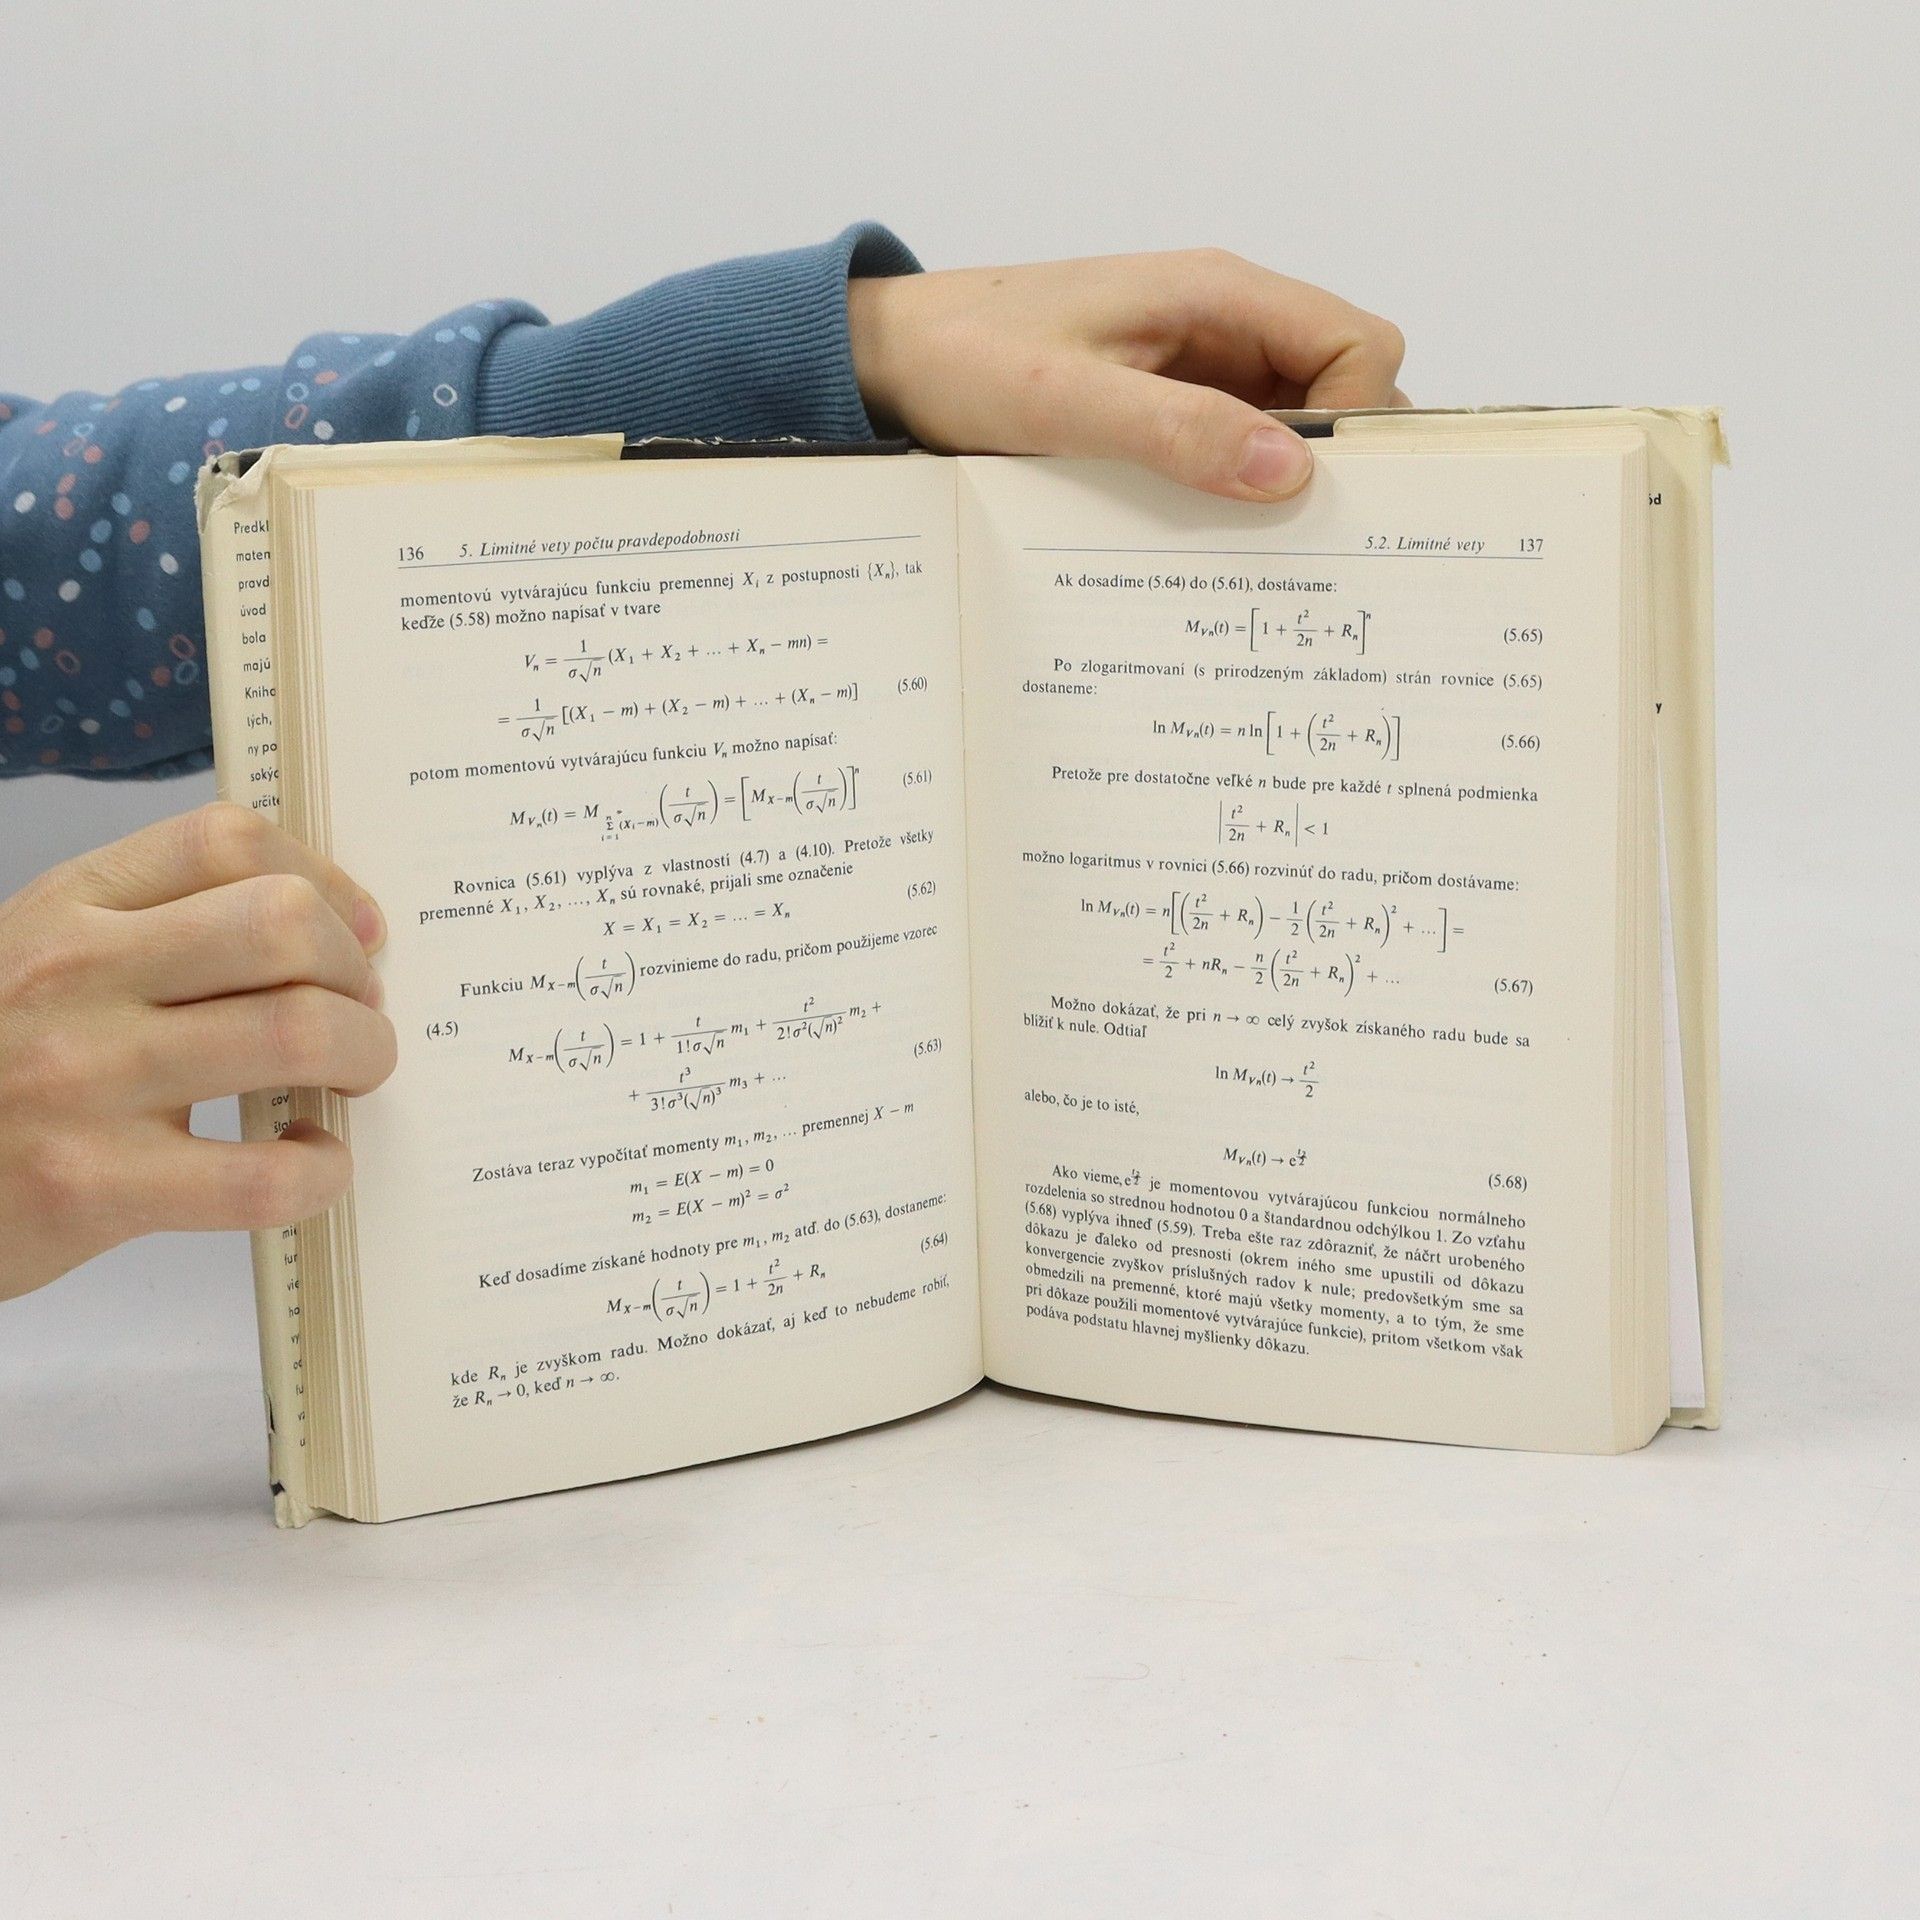 Predkl
maten
pravd
úvod
bola
majú
Kniha
lých,
ny po
sokýc
určite
cov
136 5. Limitné vety počtu pravdepodobnosti
momentovú vytvárajúcu funkciu premennej X_i z postupnosti {X_n}, tak
keďže (5.58) možno napísať v tvare
V_n = 1/(σ√n) (X_1 + X_2 + ... + X_n − mn) =
= 1/(σ√n) [(X_1 − m) + (X_2 − m) + ... + (X_n − m)] (5.60)
potom momentovú vytvárajúcu funkciu V_n možno napísať:
M_{V_n}(t) = M_{Σ_{i=1}^{n}(X_i−m)}(t/(σ√n)) = [M_{X−m}(t/(σ√n))]^n (5.61)
Rovnica (5.61) vyplýva z vlastností (4.7) a (4.10). Pretože všetky
premenné X_1, X_2, ..., X_n sú rovnaké, prijali sme označenie
X = X_1 = X_2 = ... = X_n (5.62)
Funkciu M_{X−m}(t/(σ√n)) rozvinieme do radu, pričom použijeme vzorec
(4.5)
M_{X−m}(t/(σ√n)) = 1 + t/(1!σ√n) m_1 + t²/(2!σ²(√n)²) m_2 +
+ t³/(3!σ³(√n)³) m_3 + ... (5.63)
Zostáva teraz vypočítať momenty m_1, m_2, ... premennej X − m
m_1 = E(X − m) = 0
m_2 = E(X − m)² = σ²
Keď dosadíme získané hodnoty pre m_1, m_2 atď. do (5.63), dostaneme:
M_{X−m}(t/(σ√n)) = 1 + t²/2n + R_n (5.64)
kde R_n je zvyškom radu. Možno dokázať, aj keď to nebudeme robiť,
že R_n → 0, keď n → ∞.
5.2. Limitné vety 137
Ak dosadíme (5.64) do (5.61), dostávame:
M_{V_n}(t) = [1 + t²/2n + R_n]^n (5.65)
Po zlogaritmovaní (s prirodzeným základom) strán rovnice (5.65)
dostaneme:
ln M_{V_n}(t) = n ln[1 + (t²/2n + R_n)] (5.66)
Pretože pre dostatočne veľké n bude pre každé t splnená podmienka
|t²/2n + R_n| < 1
možno logaritmus v rovnici (5.66) rozvinúť do radu, pričom dostávame:
ln M_{V_n}(t) = n[(t²/2n + R_n) − 1/2 (t²/2n + R_n)² + ...] =
= t²/2 + nR_n − n/2 (t²/2n + R_n)² + ... (5.67)
Možno dokázať, že pri n → ∞ celý zvyšok získaného radu bude sa
blížiť k nule. Odtiaľ
ln M_{V_n}(t) → t²/2
alebo, čo je to isté,
M_{V_n}(t) → e^{t²/2} (5.68)
Ako vieme, e^{t²/2} je momentovou vytvárajúcou funkciou normálneho
rozdelenia so strednou hodnotou 0 a štandardnou odchýlkou 1. Zo vzťahu
(5.68) vyplýva ihneď (5.59). Treba ešte raz zdôrazniť, že náčrt urobeného
dôkazu je ďaleko od presnosti (okrem iného sme upustili od dôkazu
konvergencie zvyškov príslušných radov k nule; predovšetkým sme sa
obmedzili na premenné, ktoré majú všetky momenty, a to tým, že sme
pri dôkaze použili momentové vytvárajúce funkcie), pritom všetkom však
podáva podstatu hlavnej myšlienky dôkazu.